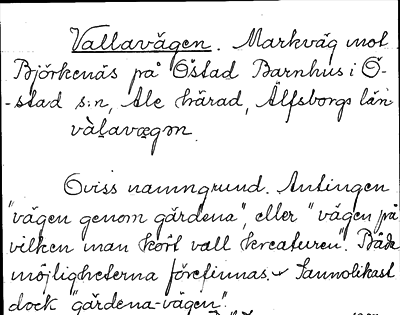 Vallavägen. Markväg mot
Björkenäs på Östad Barnhus i Ö-
-stad s:n, Ale härad, Älfsborgs län
vàlavægən.
Oviss namngrund. Antingen
"vägen genom gärdena", eller "vägen på
vilken man kört vall kreaturen". Båda
möjligheterna förefinnas. Sannolikast
dock "gärdena-vägen".